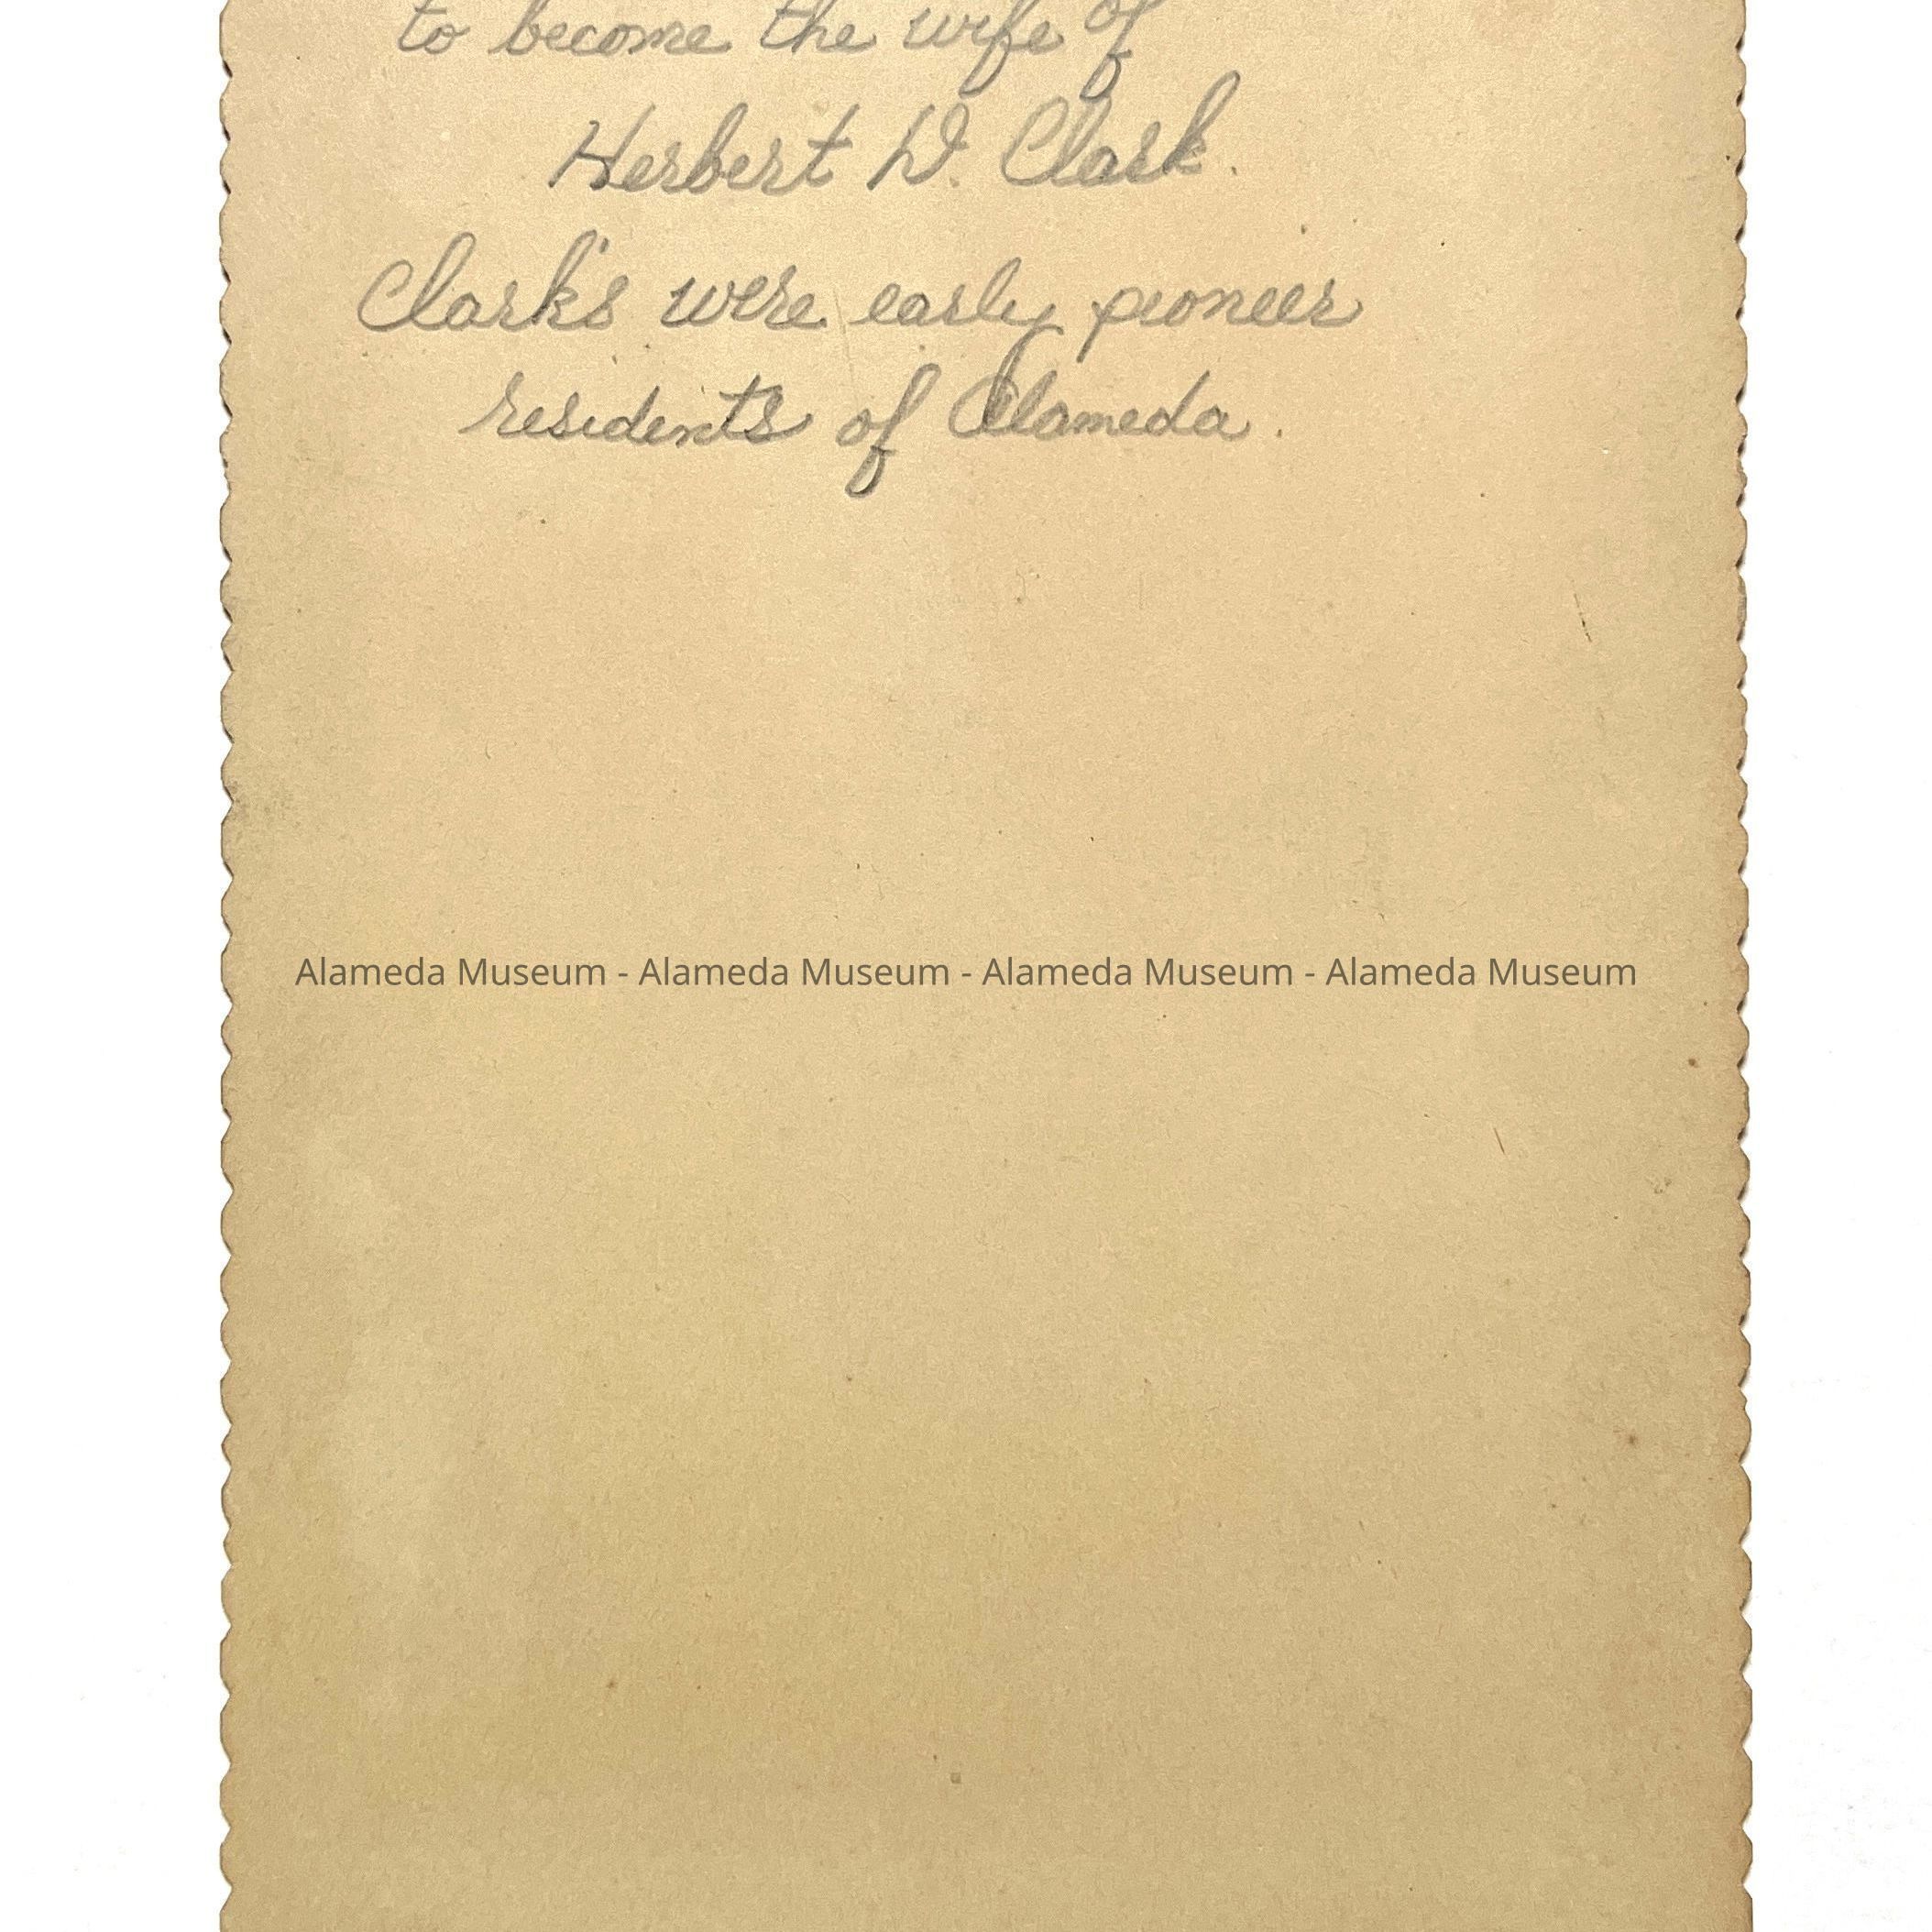 to become the wife of
Herbert D. Clark.
Clark's were early pioneer
residents of Alameda.
Alameda Museum - Alameda Museum - Alameda Museum - Alameda Museum